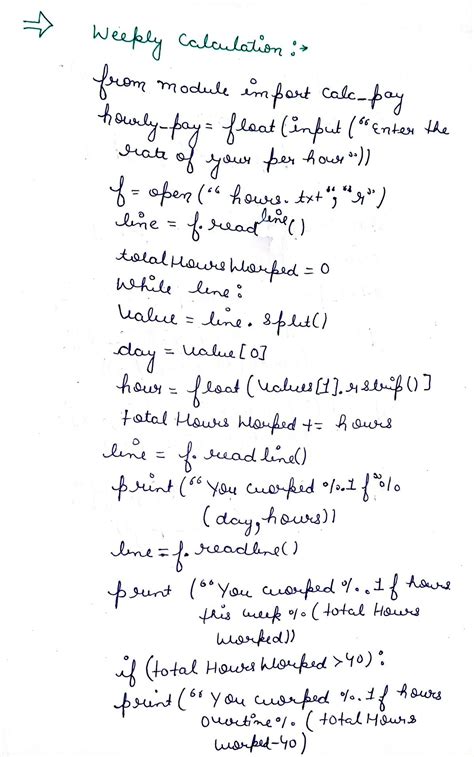 ⇒ Weekly Calculation :→
from module import calc_pay
hourly_pay = float (input ("Enter the
rate of your per hour"))
f = open ("hours.txt", "r")
line = f.readline()
total Hours Worked = 0
While line :
Value = line. split()
day = Value [0]
hour = float (values [1]. rstrip()]
total Hours Worked += hours
line = f. readline()
print ("You worked %.1f" %
(day, hours))
line = f. readline()
print ("You worked %..1f hours
this week % (total Hours
Worked))
if (total Hours Worked > 40) :
print ("You worked %.1f hours
Overtime % (total Hours
worked-40)